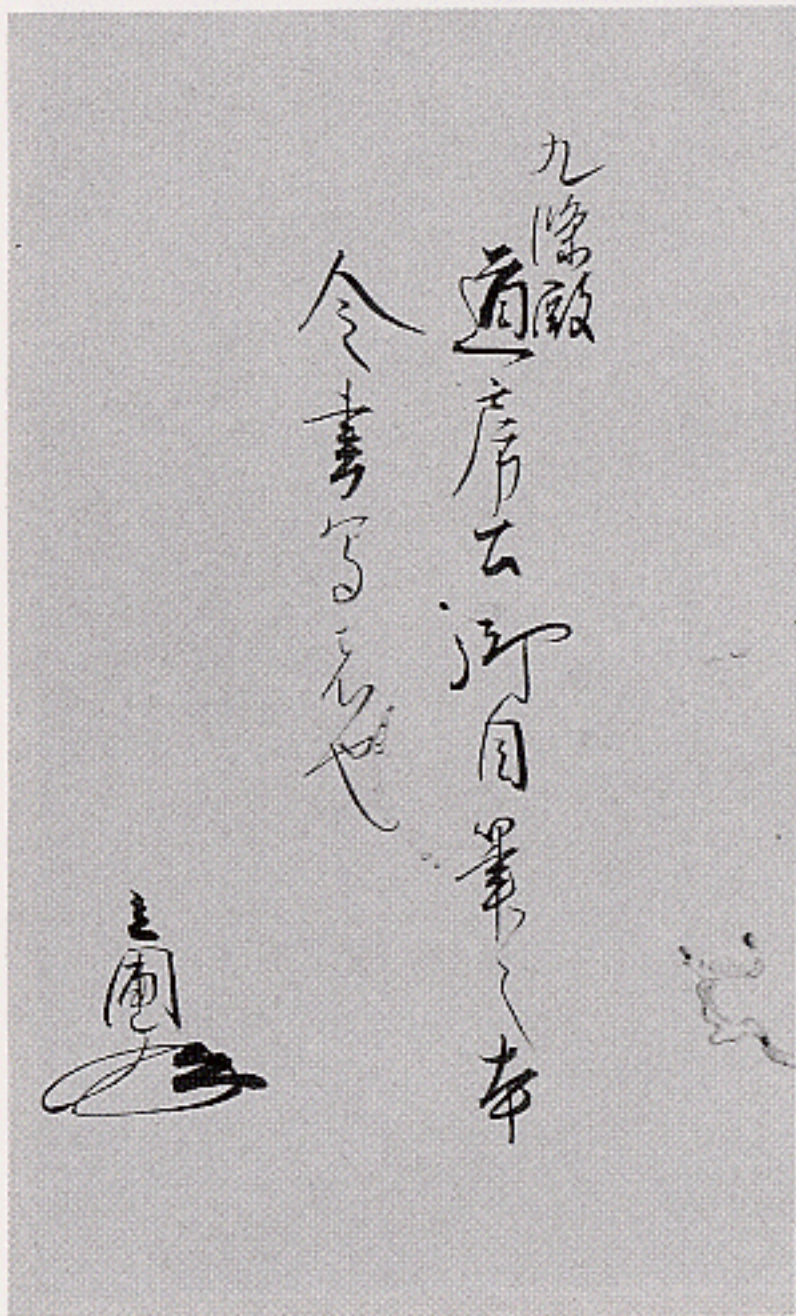 九條殿
道房公御自筆之本
令書写者也
立圃